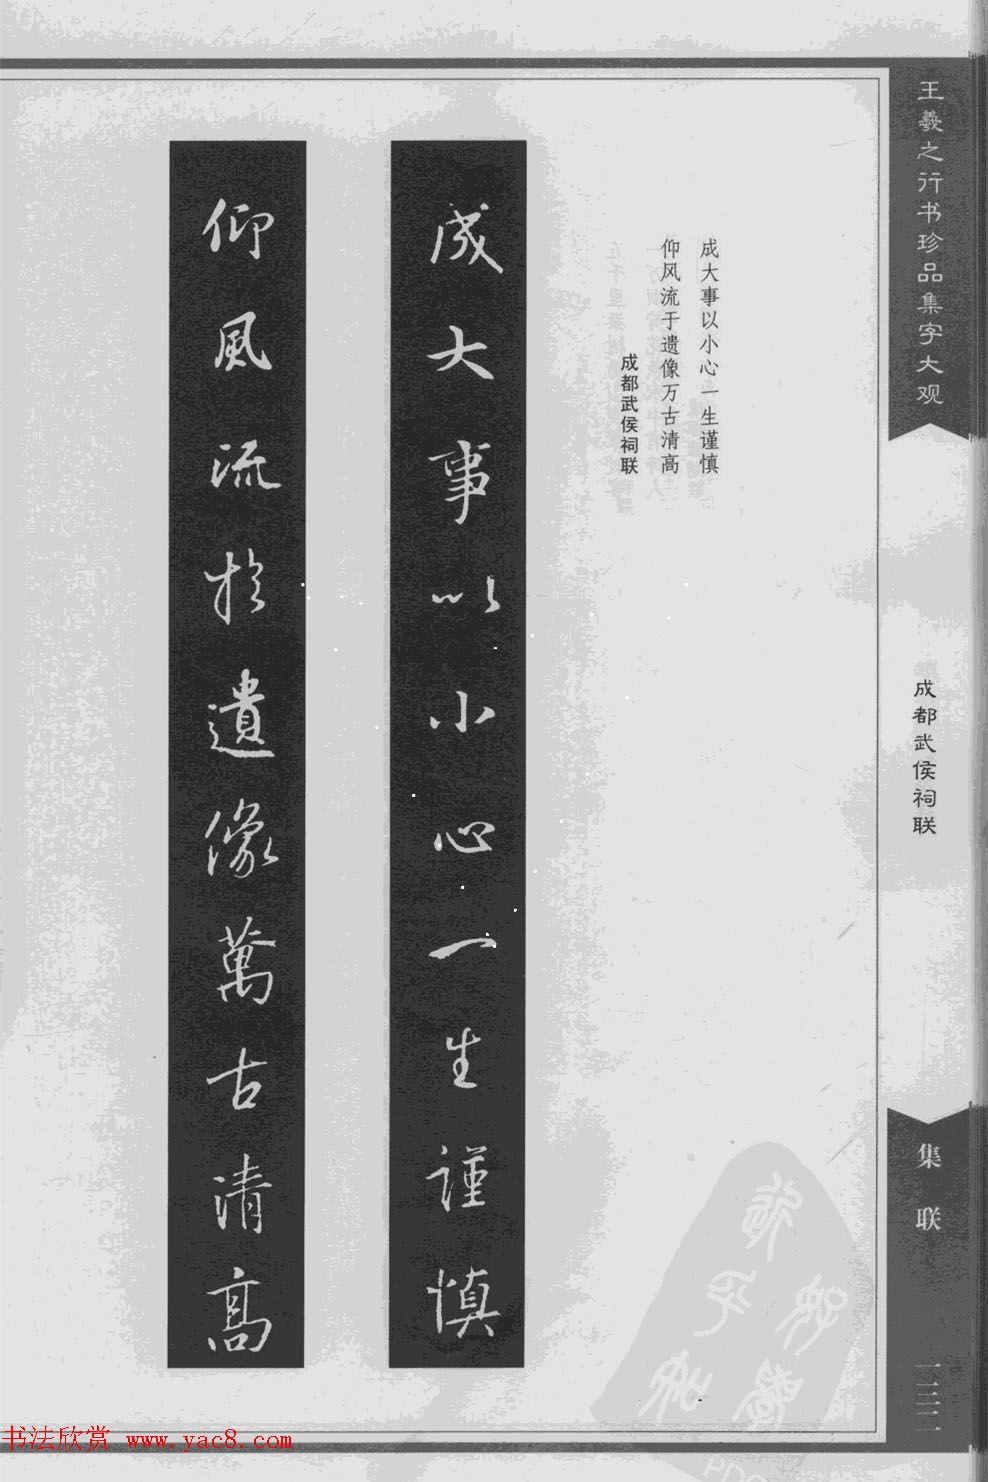 王羲之行书珍品集字大观
成都武侯祠联
集联
成大事以小心一生谨慎
仰风流于遗像万古清高
成都武侯祠联
成大事以小心一生謹慎
仰風流於遺像萬古清高
书法欣赏 www.yac8.com